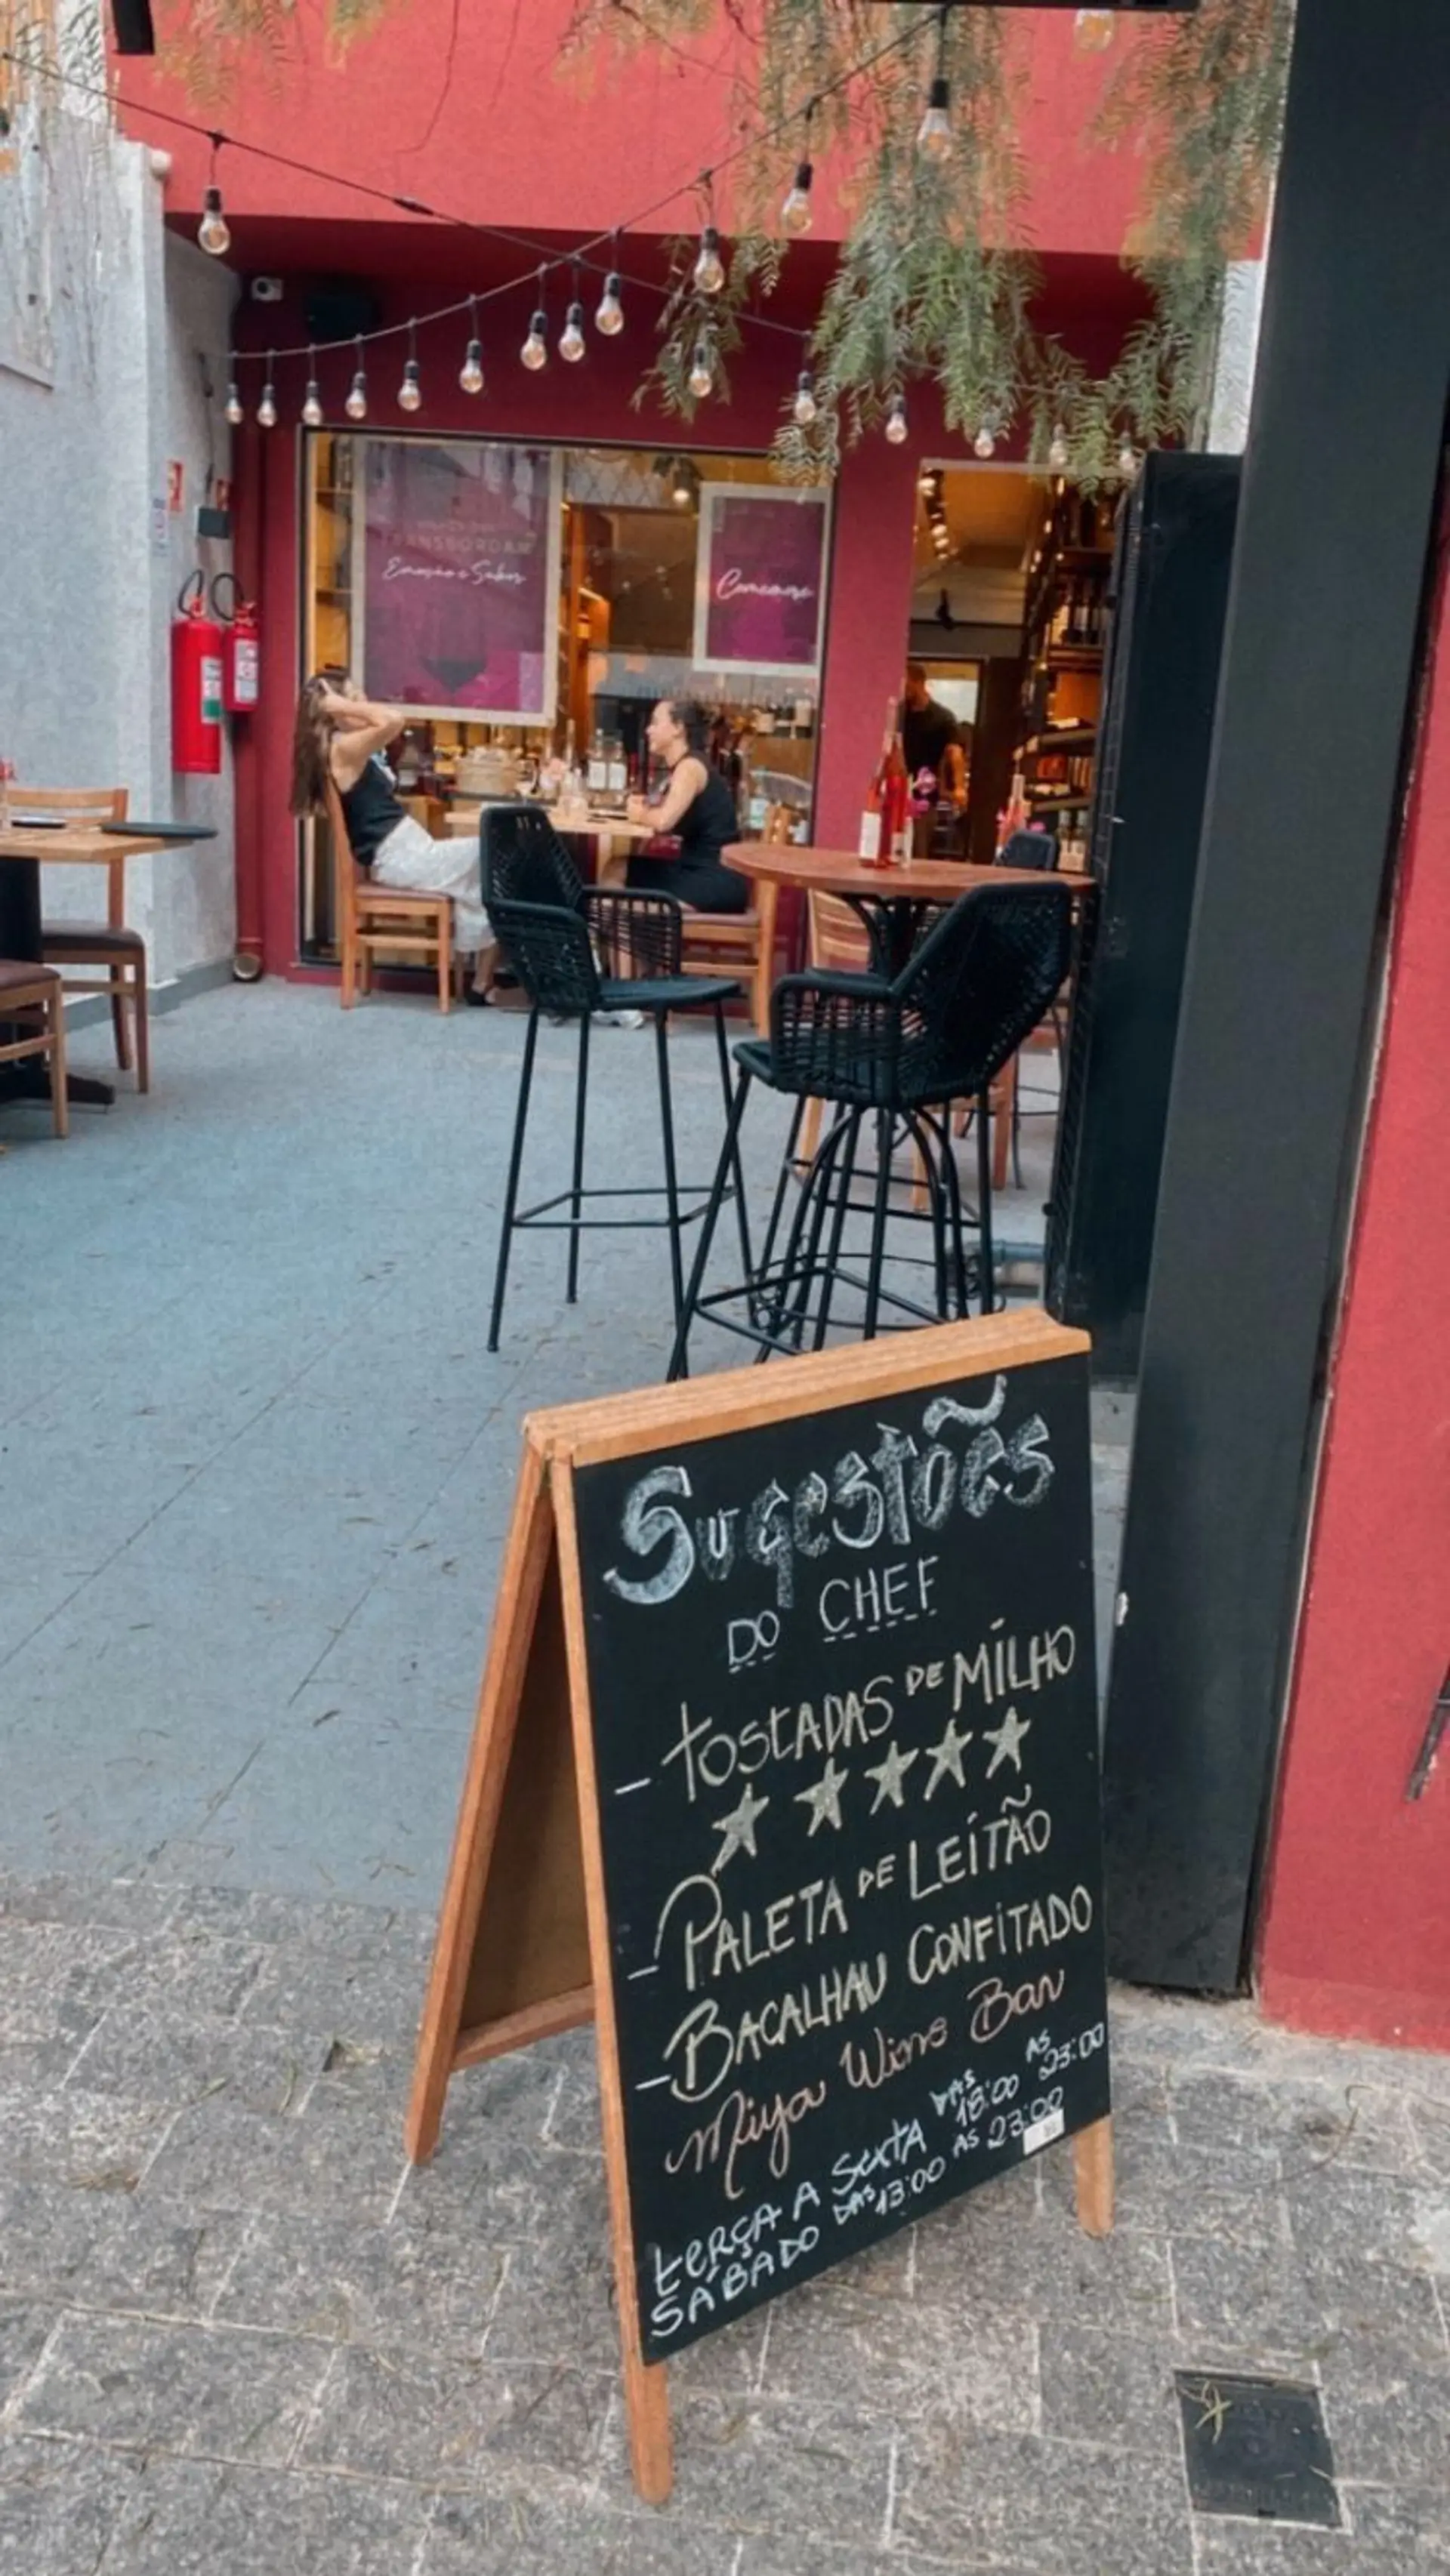 TRANSBORDAM
Emoção e Sabor
Comemore
Sugestões
DO CHEF
- tostADAS DE MILHO
- PALETA DE LEITÃO
- BACALHAU CONFITADO
Miya Wine Bar
tERÇA A SextA DAS 18:00 AS 23:00
SÁBADO DAS 13:00 AS 23:00